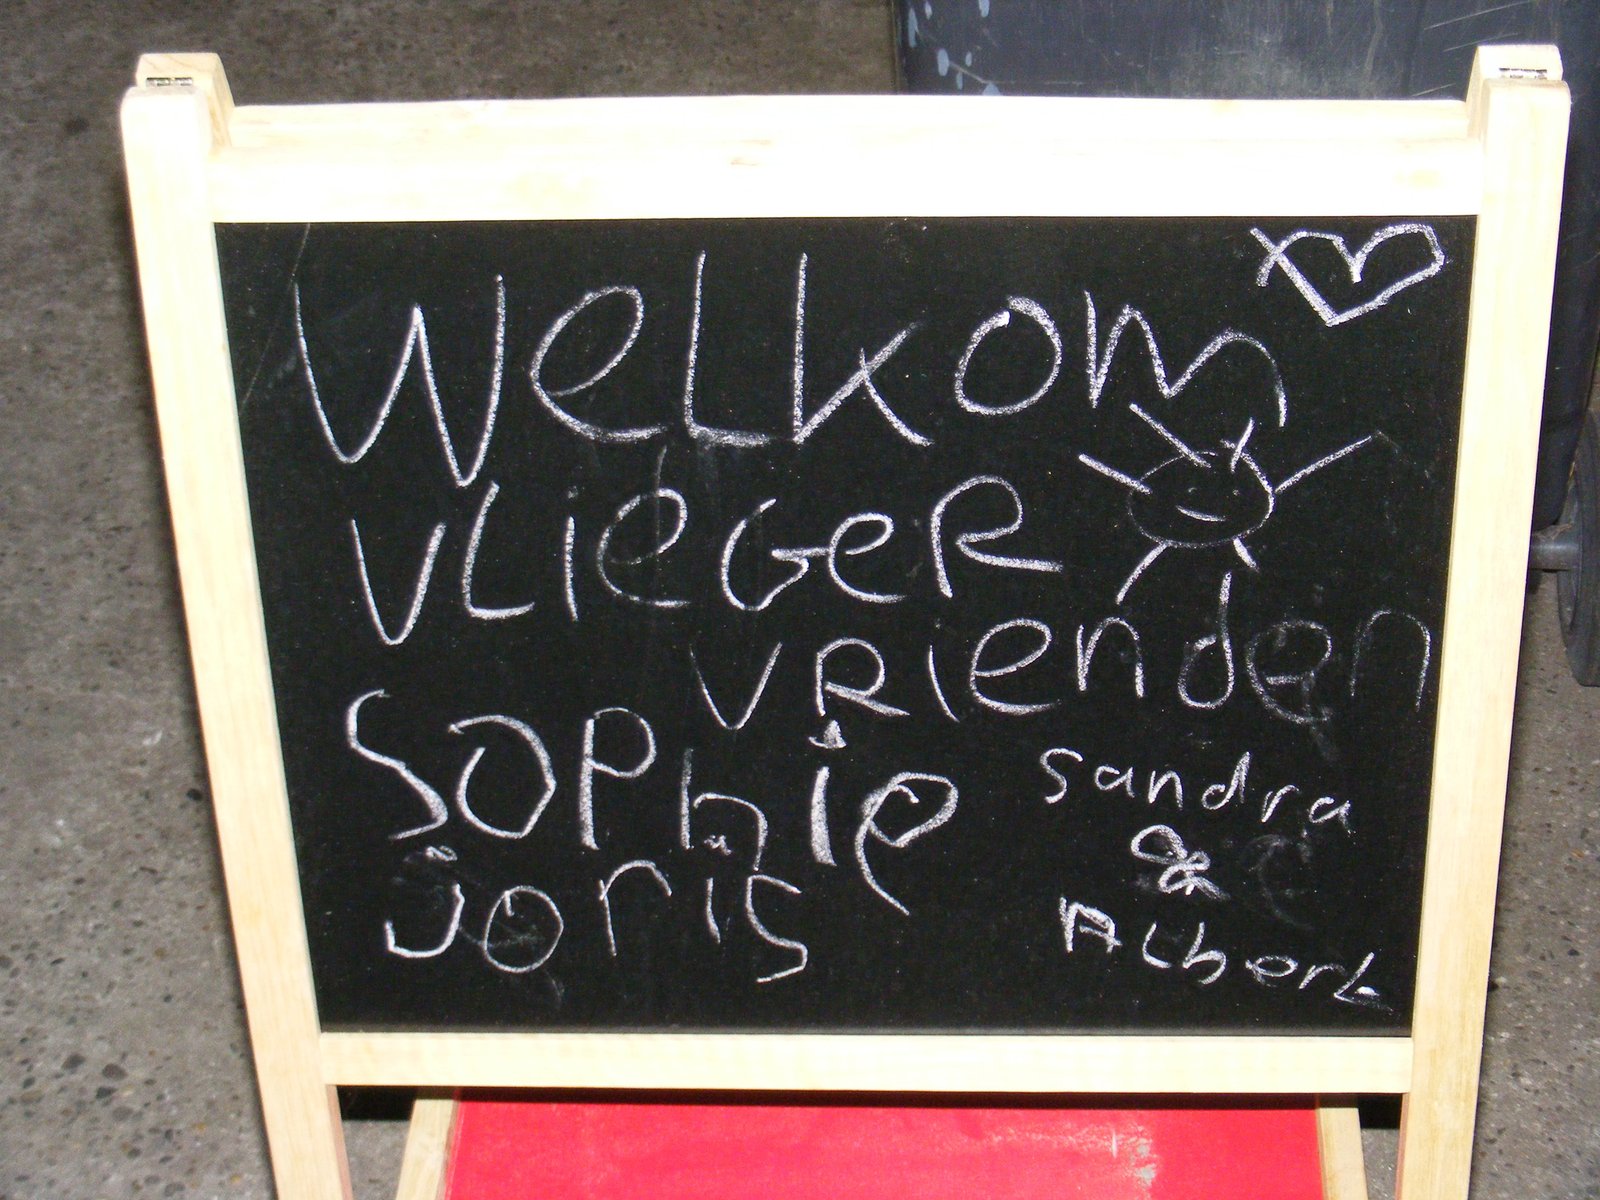 Welkom
VLieGeR
VRienden
SOPhie
joris
Sandra
&
Albert